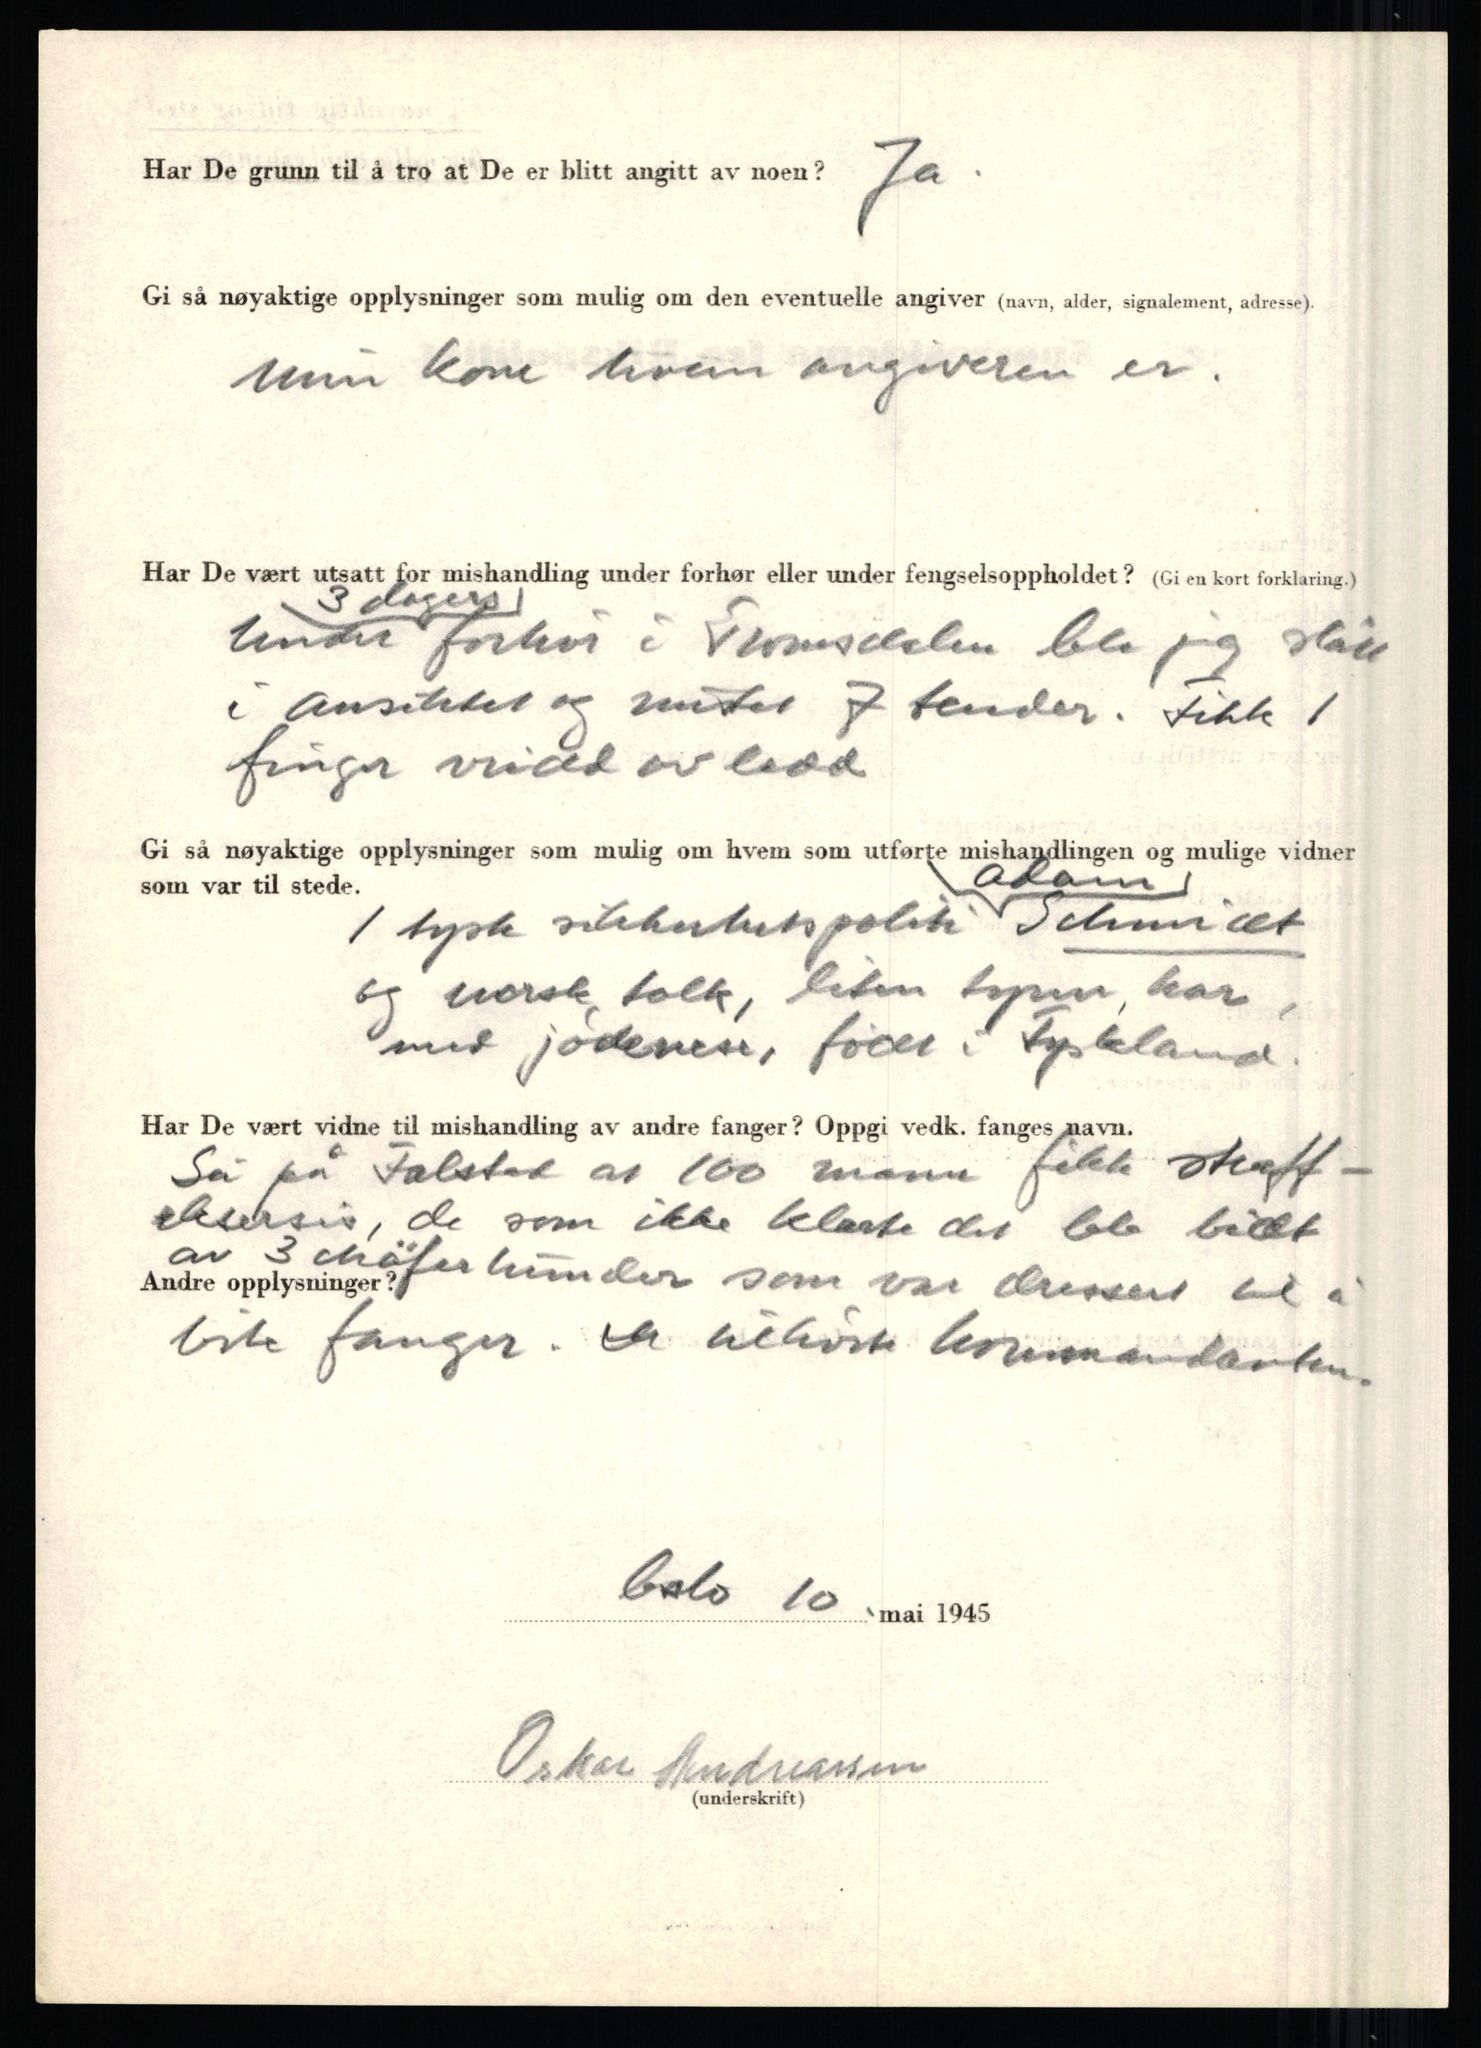 Har De grunn til å tro at De er blitt angitt av noen? Ja.
Gi så nøyaktige opplysninger som mulig om den eventuelle angiver (navn, alder, signalement, adresse).
Min kone hvem angiveren er.
Har De vært utsatt for mishandling under forhør eller under fengselsoppholdet? (Gi en kort forklaring.)
3 dagers
Under forhör i Tromsdalen ble jeg slått
i ansiktet og mistet 7 tender. Fikk 1
finger vridd av ledd
Gi så nøyaktige opplysninger som mulig om hvem som utførte mishandlingen og mulige vidner
som var til stede.
Adam
1 tysk sikkerhetspoliti Schmidt
og norsk tolk, liten tynn kar,
med jödenese, födt i Tyskland.
Har De vært vidne til mishandling av andre fanger? Oppgi vedk. fanges navn.
Så på Falstad at 100 mann fikk straff-
eksersis, de som ikke klarte det ble bitt
av 3 chäferhunder som var dressert til å
Andre opplysninger?
bite fanger. De tilhörte kommandanten.
Oslo 10. mai 1945
Oskar Andreassen
(underskrift)